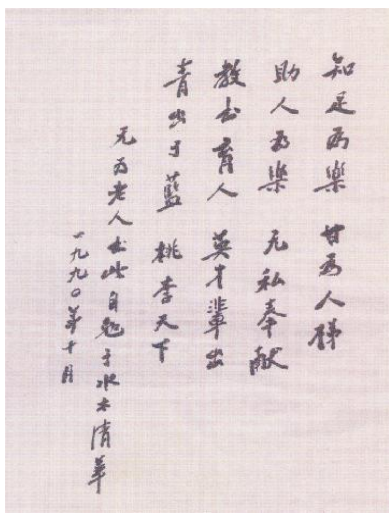 知足为樂 甘为人梯
助人为樂 无私奉献
教书育人 英才輩出
青出于藍 桃李天下
无为老人书此自勉于水木清華
一九九〇年十月